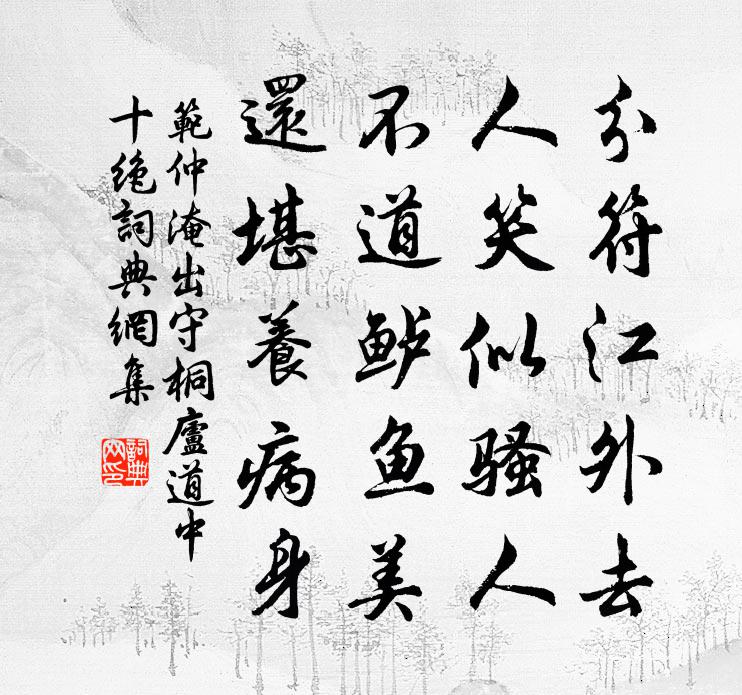 分符江外去
人笑似骚人
不道鲈鱼美
還堪養病身
範仲淹出守桐廬道中
十絶詞典網集
詞典
网印